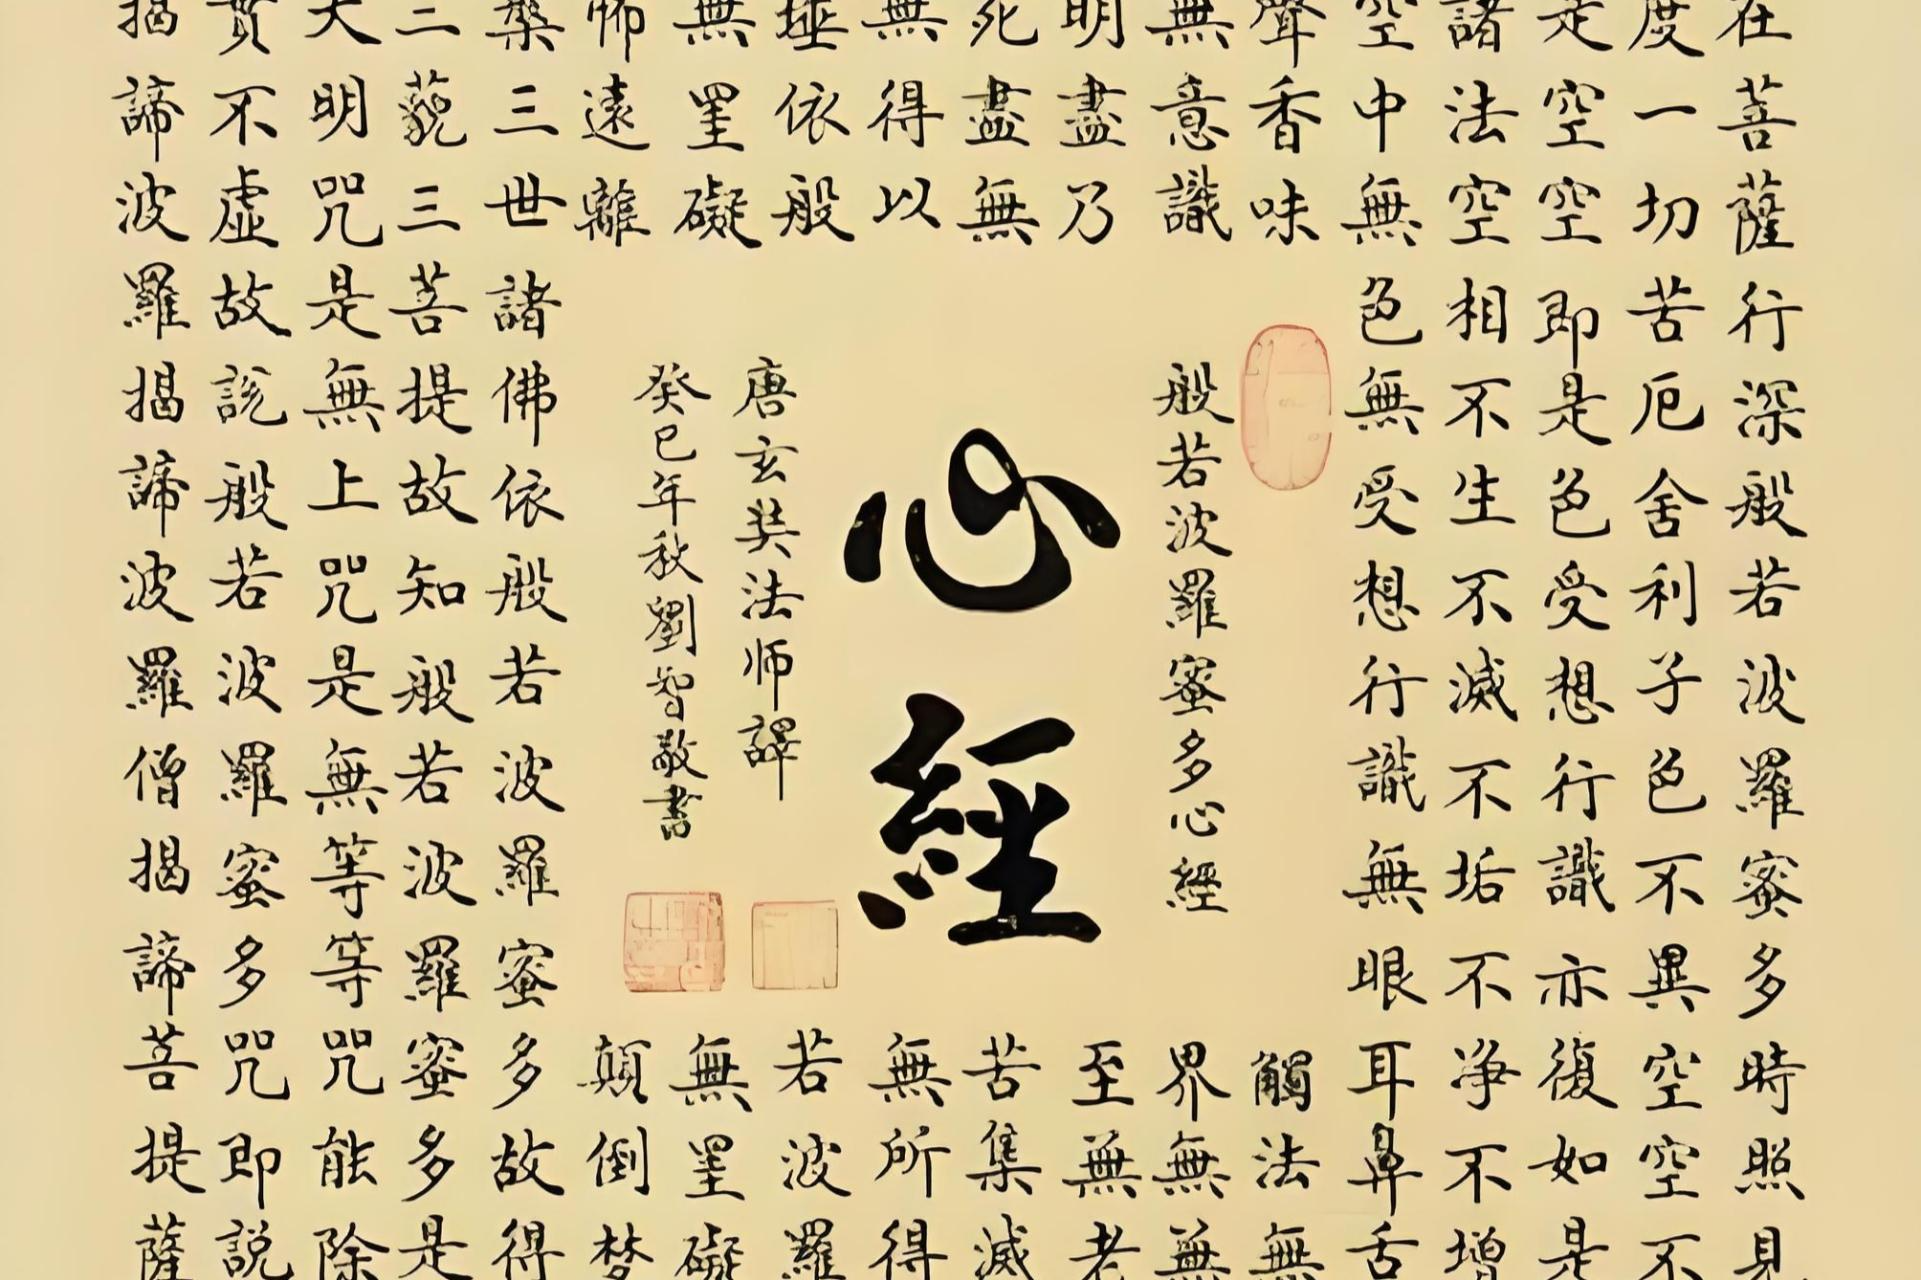 在菩薩行深般若波羅蜜多時照見
度一切苦厄舍利子色不異空空不
是空空即是色受想行識亦復如是
諸法空相不生不滅不垢不净不增
空中無色無受想行識無眼耳鼻舌
聲香味
觸法無
無意識
界無無
明盡乃
至無老
死盡無
苦集滅
無得以
無所得
埵依般
若波羅
無罣礙
無罣礙
怖遠離
顛倒夢
般若波羅蜜多心經
心經
唐玄奘法师譯
癸巳年秋劉智敬書
槃三世諸佛依般若波羅蜜多故得
三藐三菩提故知般若波羅蜜多是
大明咒是無上咒是無等等咒能除
實不虛故說般若波羅蜜多咒即說
揭諦波羅揭諦波羅僧揭諦菩提薩